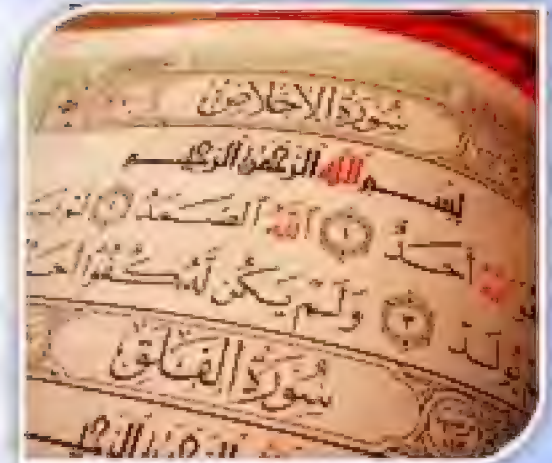 سُورَةُ الإِخْلَاصِ
بِسْمِ اللهِ الرَّحْمَٰنِ الرَّحِيمِ
أَحَدٌ ١ اللهُ الصَّمَدُ ٢
يُولَدْ ٣ وَلَمْ يَكُنْ لَهُ كُفُوًا
سُورَةُ الْفَلَقِ
الرَّحْمَٰنِ